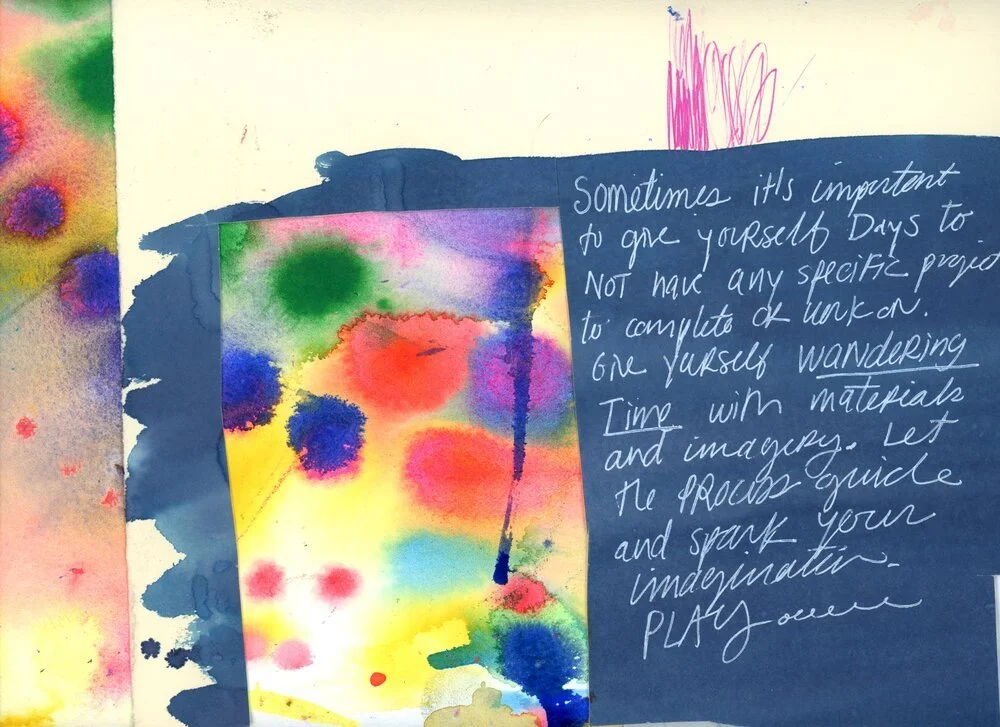 Sometimes it's important
to give yourself Days to
NOT have any specific project
to complete or work on.
Give yourself wandering
Time with materials
and imagery. Let
the PROCESS guide
and spark your
imagination.
PLAY